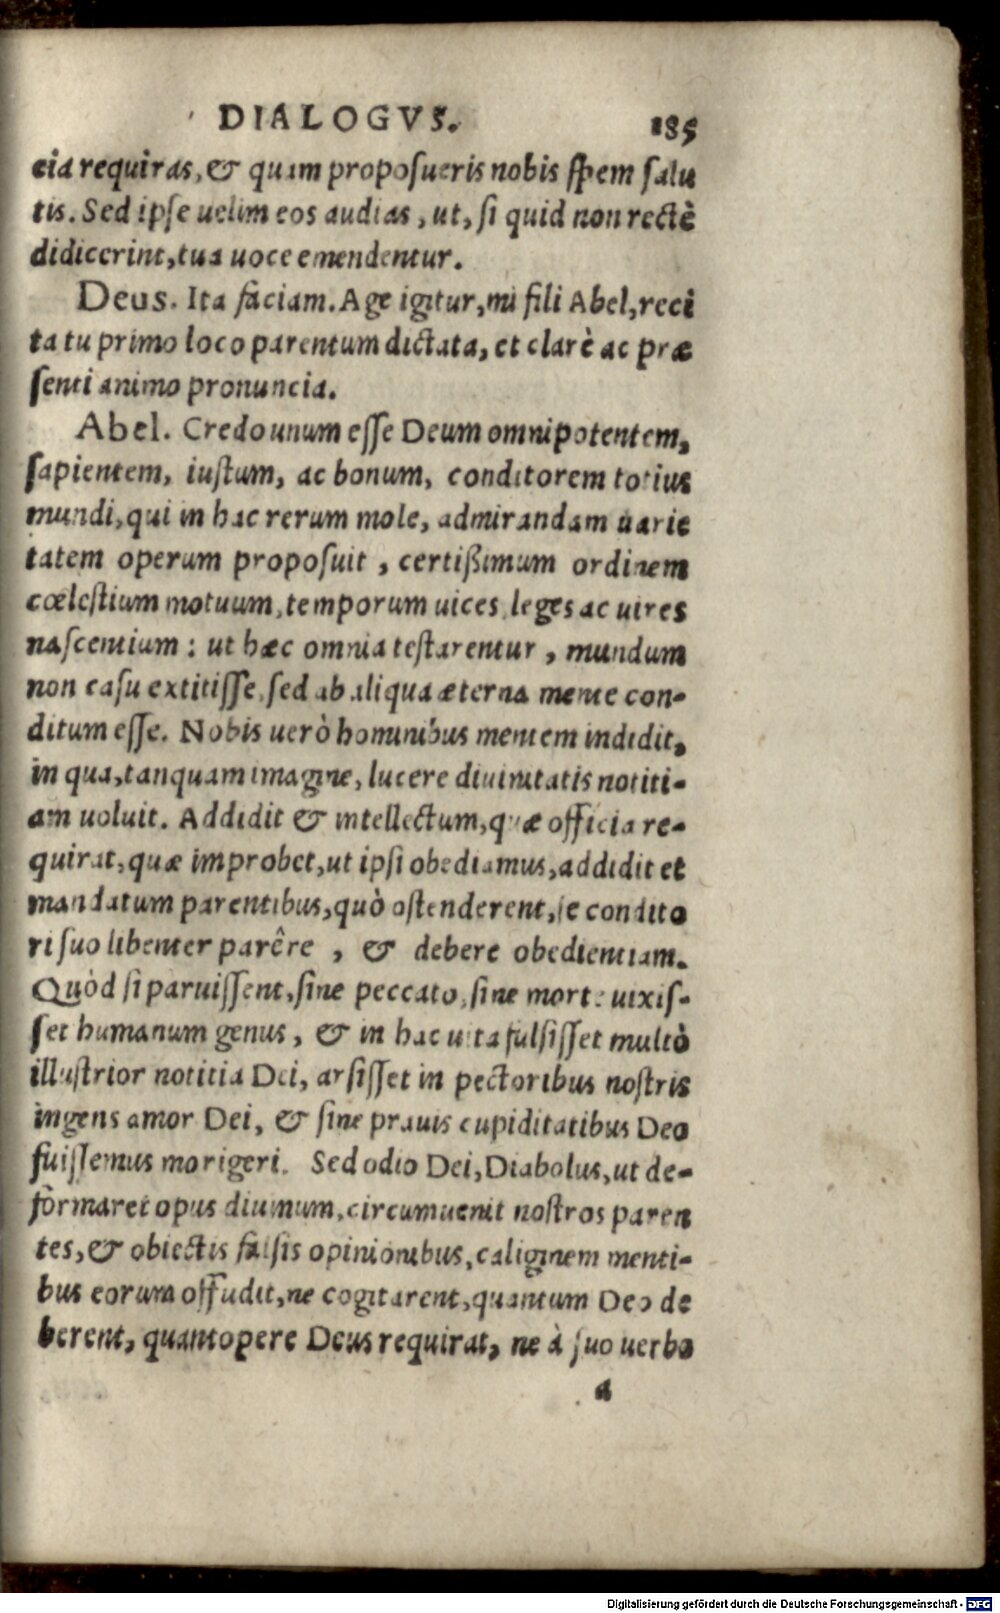 DIALOGVS. 185
cia requiras, & quam proposueris nobis spem salu
tis. Sed ipse uelim eos audias, ut, si quid non rectè
didicerint, tua uoce emendentur.
Deus. Ita faciam. Age igitur, mi fili Abel, reci
ta tu primo loco parentum dictata, et clarè ac præ
senti animo pronuncia.
Abel. Credo unum esse Deum omnipotentem,
sapientem, iustum, ac bonum, conditorem totius
mundi, qui in hac rerum mole, admirandam uarie
tatem operum proposuit, certißimum ordinem
cœlestium motuum, temporum uices, leges ac uires
nascentium: ut hæc omnia testarentur, mundum
non casu extitisse, sed ab aliqua æterna mente con-
ditum esse. Nobis uerò hominibus mentem indidit,
in qua, tanquam imagine, lucere diuinitatis notiti-
am uoluit. Addidit & intellectum, quæ officia re-
quirat, quæ improbet, ut ipsi obediamus, addidit et
mandatum parentibus, quò ostenderent, se condito
ri suo libenter parêre, & debere obedientiam.
Quòd si paruissent, sine peccato, sine morte uixis-
set humanum genus, & in hac uita fulsisset multò
illustrior notitia Dei, arsisset in pectoribus nostris
ingens amor Dei, & sine prauis cupiditatibus Deo
fuissemus morigeri. Sed odio Dei, Diabolus, ut de-
formaret opus diuinum, circumuenit nostros paren
tes, & obiectis falsis opinionibus, caliginem menti-
bus eorum offudit, ne cogitarent, quantum Deo de
berent, quantopere Deus requirat, ne à suo uerbo
a
Digitalisierung gefördert durch die Deutsche Forschungsgemeinschaft - DFG